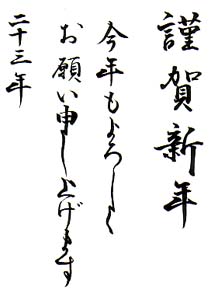 謹賀新年
今年もよろしく
お願い申し上げます
二十三年